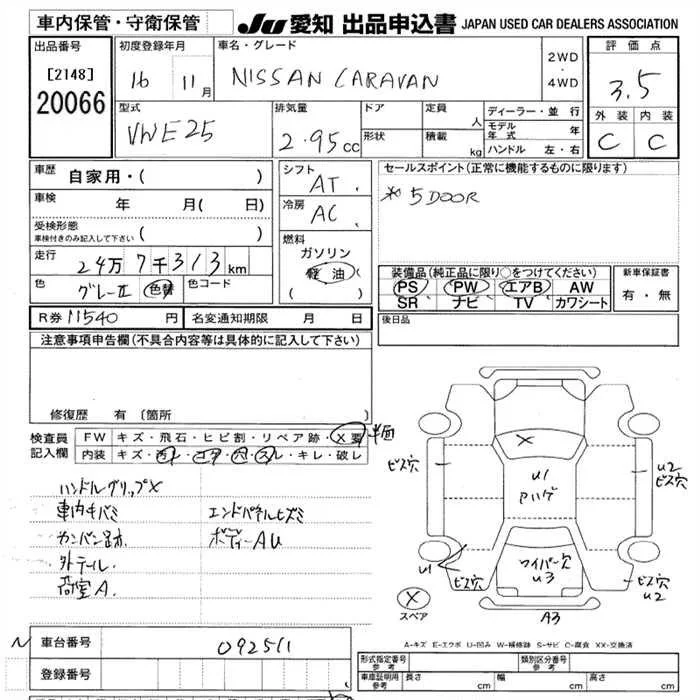 車内保管・守衛保管 JU 愛知 出品申込書 JAPAN USED CAR DEALERS ASSOCIATION
出品番号 初度登録年月 車名・グレード 2WD ・ 4WD 評価点
[2148] 20066 16 11月 NISSAN CARAVAN 3.5
型式 排気量 ドア 定員 人 ディーラー・並行 外装 内装
VWE25 2.95cc 形状 積載 kg モデル年式 年 C C
ハンドル 左・右
車歴 自家用・( ) シフト AT セールスポイント(正常に機能するものに限ります)
車検 年 月( 日) 冷房 AC ※5DOOR
受検形態 車検付きのみ記入して下さい ( )
燃料 ガソリン 軽油 ( )
走行 24万7千313km 装備品(純正品に限り○をつけてください) 新車保証書
色 グレーII 色替 色コード PS PW エアB AW 有・無
SR ナビ TV カワシート
R券 11540円 名変通知期限 月 日 後日品
注意事項申告欄(不具合内容等は具体的に記入して下さい)
修復歴 有 (箇所
検査員記入欄 FW キズ・飛石・ヒビ割・リペア跡・X要
内装 キズ・汚レ・コゲ・穴・スレ・キレ・破レ
ハンドルグリップX
車内キバミ エンドパネルヒズミ
カンバン跡 ボディーAU
外テール
荷室A.
X
ビス穴
U1
ハゲ
U2
ビス穴
U1
ビス穴
ワイパー穴
U3
ビス穴
U2
X
スペア
A3
A-キズ E-エクボ U-凹み W-補修跡 S-サビ C-腐食 XX-交換済
N 車台番号 092511
登録番号
形式指定番号 参考 類別区分番号 参考
車庫証明用 参考 長さ cm 幅 cm 高さ cm